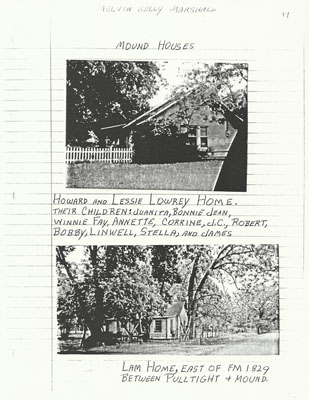 MELVIN KALLY MARSHALL
MOUND HOUSES
HOWARD AND LESSIE LOWREY HOME.
THEIR CHILDREN: JUANITA, BONNIE JEAN,
WINNIE FAY, ANNETTE, CORKINE, J.C., ROBERT,
BOBBY, LINWELL, STELLA, AND JAMES
LAM HOME, EAST OF FM 1829
BETWEEN PULLTIGHT + MOUND.